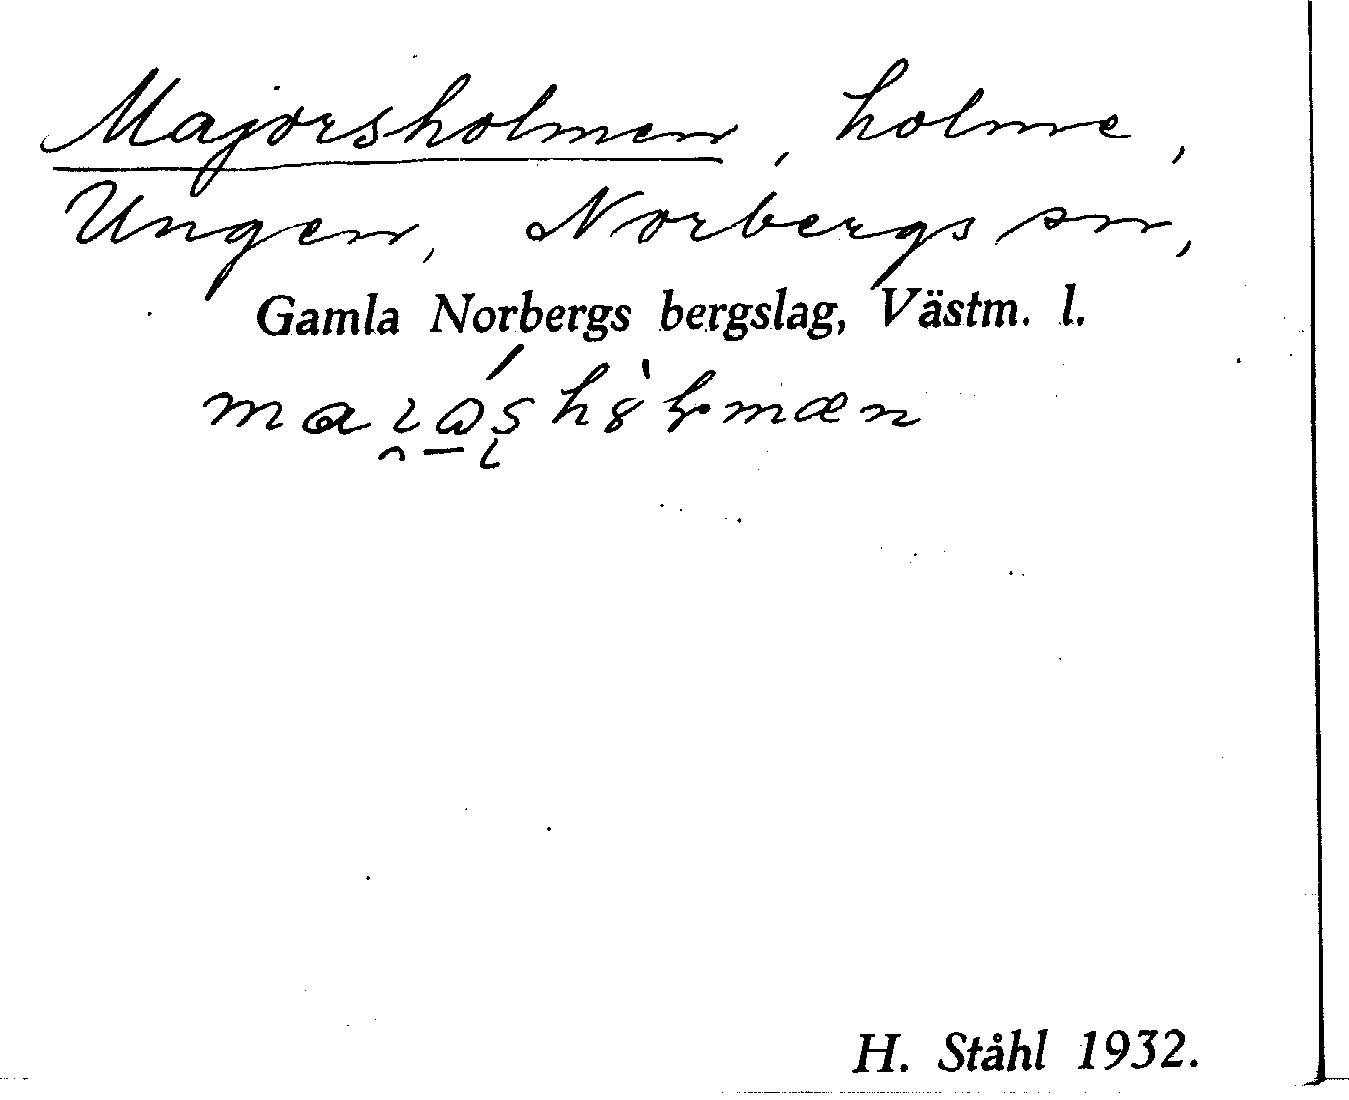 Majorsholmen, holme,
Ungen, Norbergs sn,
Gamla Norbergs bergslag, Västm. l.
H. Ståhl 1932.